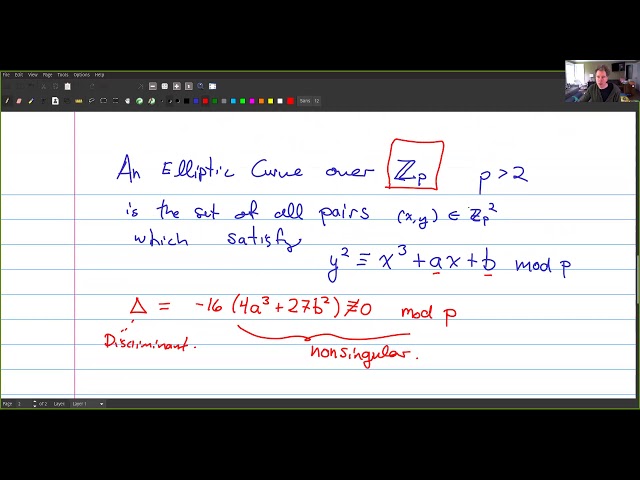 File Edit View Page Tools Options Help
Sans 12
An Elliptic Curve over ℤp p > 2
is the set of all pairs (x,y) ∈ ℤp²
which satisfy
y² ≡ x³ + ax + b mod p
Δ = -16 (4a³ + 27b²) ≢ 0 mod p
Discriminant.
nonsingular.
Page 2 of 2 Layer Layer 1